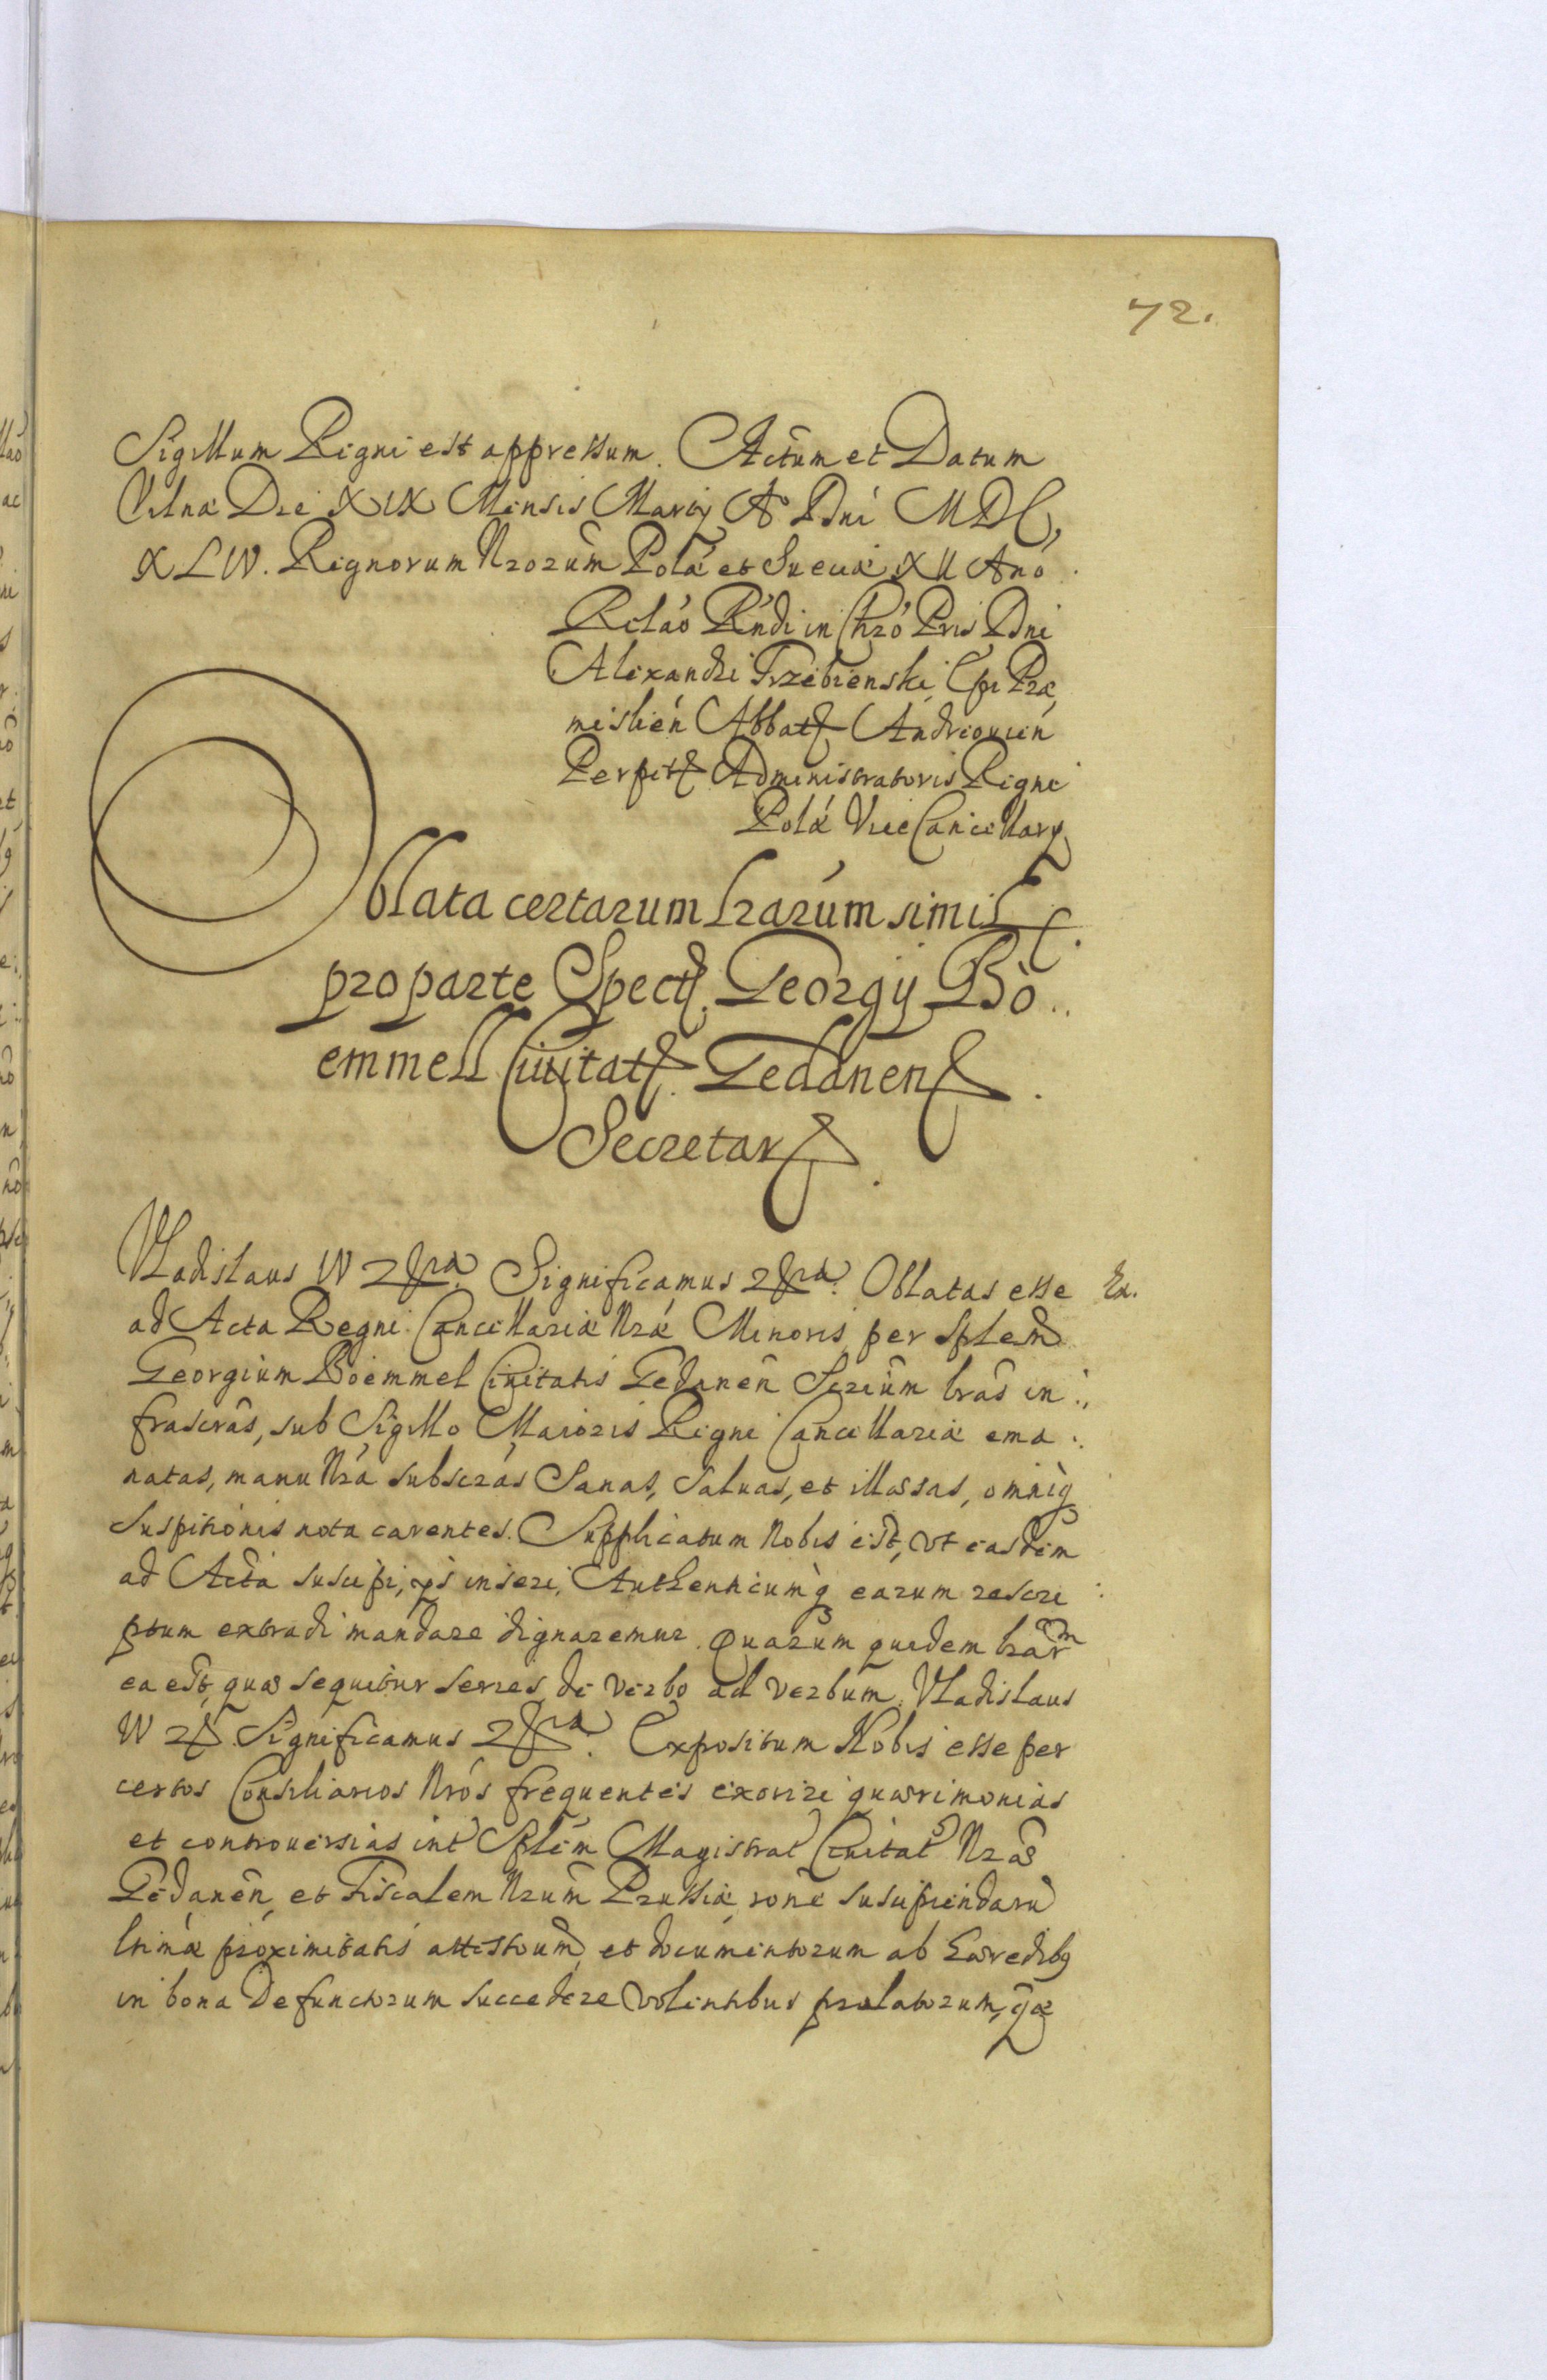 72.
Sigillum Regni est appressum. Actum et Datum
Vilnæ Die XIX Mensis Marty Aº Dni MDC,
XLIV. Regnorum Nrorum Polæ et Sueciæ XII Anō
Relaō Rndi in Chrō Pris Dni
Alexandri Trzebienski Epi Præ,
mislien Abbatis Andreouien
Perpetis Administratoris Regni
Polæ ViceCancellary
Oblata certarum Lrarum similis
pro parte Spectis Georgy Bö..
emmell Ciuitatis Gedanensis.
Secretarÿ.
Vladislaus IV etc Significamus etc. Oblatas esse Ex.
ad Acta Regni Cancellariæ Nræ Minoris per Splem
Georgium Boemmel Ciuitatis Gedanen̄ Scriūm lrās in:,
frascrās, sub Sigillo Maioris Regni Cancellariæ ema:.
natas, manu Nrā subscrās Sanas, Saluas, et illæsas, omniq
suspitionis nota carentes. Supplicatum Nobis est, vt easdem
ad Acta suscipi, ys inseri, Authenticumq earum rescri:
ptum extradi mandare dignaremur. Quarum quidem lrarm
ea est, quæ sequitur series de verbo ad verbum. Vladislaus
IV etc Significamus etc. Expositum Nobis esse per
certos Consiliarios Nros frequentes exoriri quærimonias
et controuersias int Splem Magistrat Ciuitat Nræ
Gedanen̄, et Fiscalem Nrum Prussiæ, rone suscipiendarū
ltimæ proximitatis attestoum, et documentorum ab Hæredibq
in bona Defunctorum succedere volentibus prolatorum, qæ